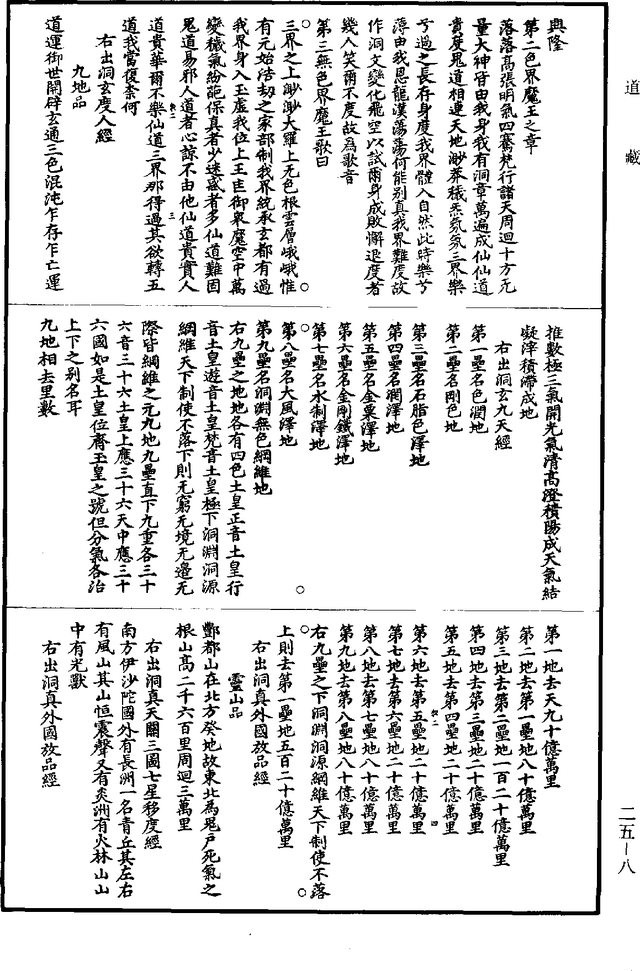 道藏
二五－八
興隆
第二色界魔王之章
落落高張明氣四騫梵行諸天周迴十方无
量大神皆由我身我有洞章萬遍成仙仙道
貴度鬼道相連天地眇莽穢炁氛氛三界樂
兮過之長存身度我界體入自然此時樂兮
薄由我恩龍漢蕩蕩何能別真我界難度故
作洞文變化飛空以試爾身成敗懈退度者
幾人笑爾不度故為歌音
第三無色界魔王歌曰
三界之上眇眇大羅上无色根雲層峨峨惟
有元始浩劫之家部制我界統承玄都有過
我界身入玉虛我位上王匡御眾魔空中萬
變穢氣紛葩保真者少迷惑者多仙道難固
鬼道易邪人道者心諒不由他仙道貴實人
道貴華爾不樂仙道三界那得過其欲轉五
道我當復柰何
右出洞玄度人經
九地品
道運御世開辟玄通三色混沌乍存乍亡運
推數極三氣開光氣清高澄積陽成天氣結
凝滓積滯成地
右出洞玄九天經
第一壘名色潤地
第二壘名剛色地
第三壘名石脂色澤地
第四壘名潤澤地
第五壘名金粟澤地
第六壘名金剛鐵澤地
第七壘名水制澤地
第八壘名大風澤地
第九壘名洞淵無色綱維地
右九壘之地地各有四色土皇正音土皇行
音土皇遊音土皇梵音土皇極下洞淵洞源
綱維天下制使不落下則无窮无境无邊无
際皆綱維之元九地九壘直下九重各三十
六音三十六土皇上應三十六天中應三十
六國如是土皇位齊玉皇之號但分氣各治
上下之別名耳
九地相去里數
第一地去天九十億萬里
第二地去第一壘地八十億萬里
第三地去第二壘地一百二十億萬里
第四地去第三壘地二十億萬里
第五地去第四壘地二十億萬里
第六地去第五壘地二十億萬里
第七地去第六壘地二十億萬里
第八地去第七壘地八十億萬里
第九地去第八壘地八十億萬里
右九壘之下洞淵洞源綱維天下制使不落
上則去第一壘地五百二十億萬里
右出洞真外國放品經
靈山品
酆都山在北方癸地故東北為鬼戶死氣之
根山高二千六百里周迴三萬里
右出洞真天關三圖七星移度經
南方伊沙陀國外有長洲一名青丘其左右
有風山其山恒震聲又有炎洲有火林山山
中有光獸
右出洞真外國放品經